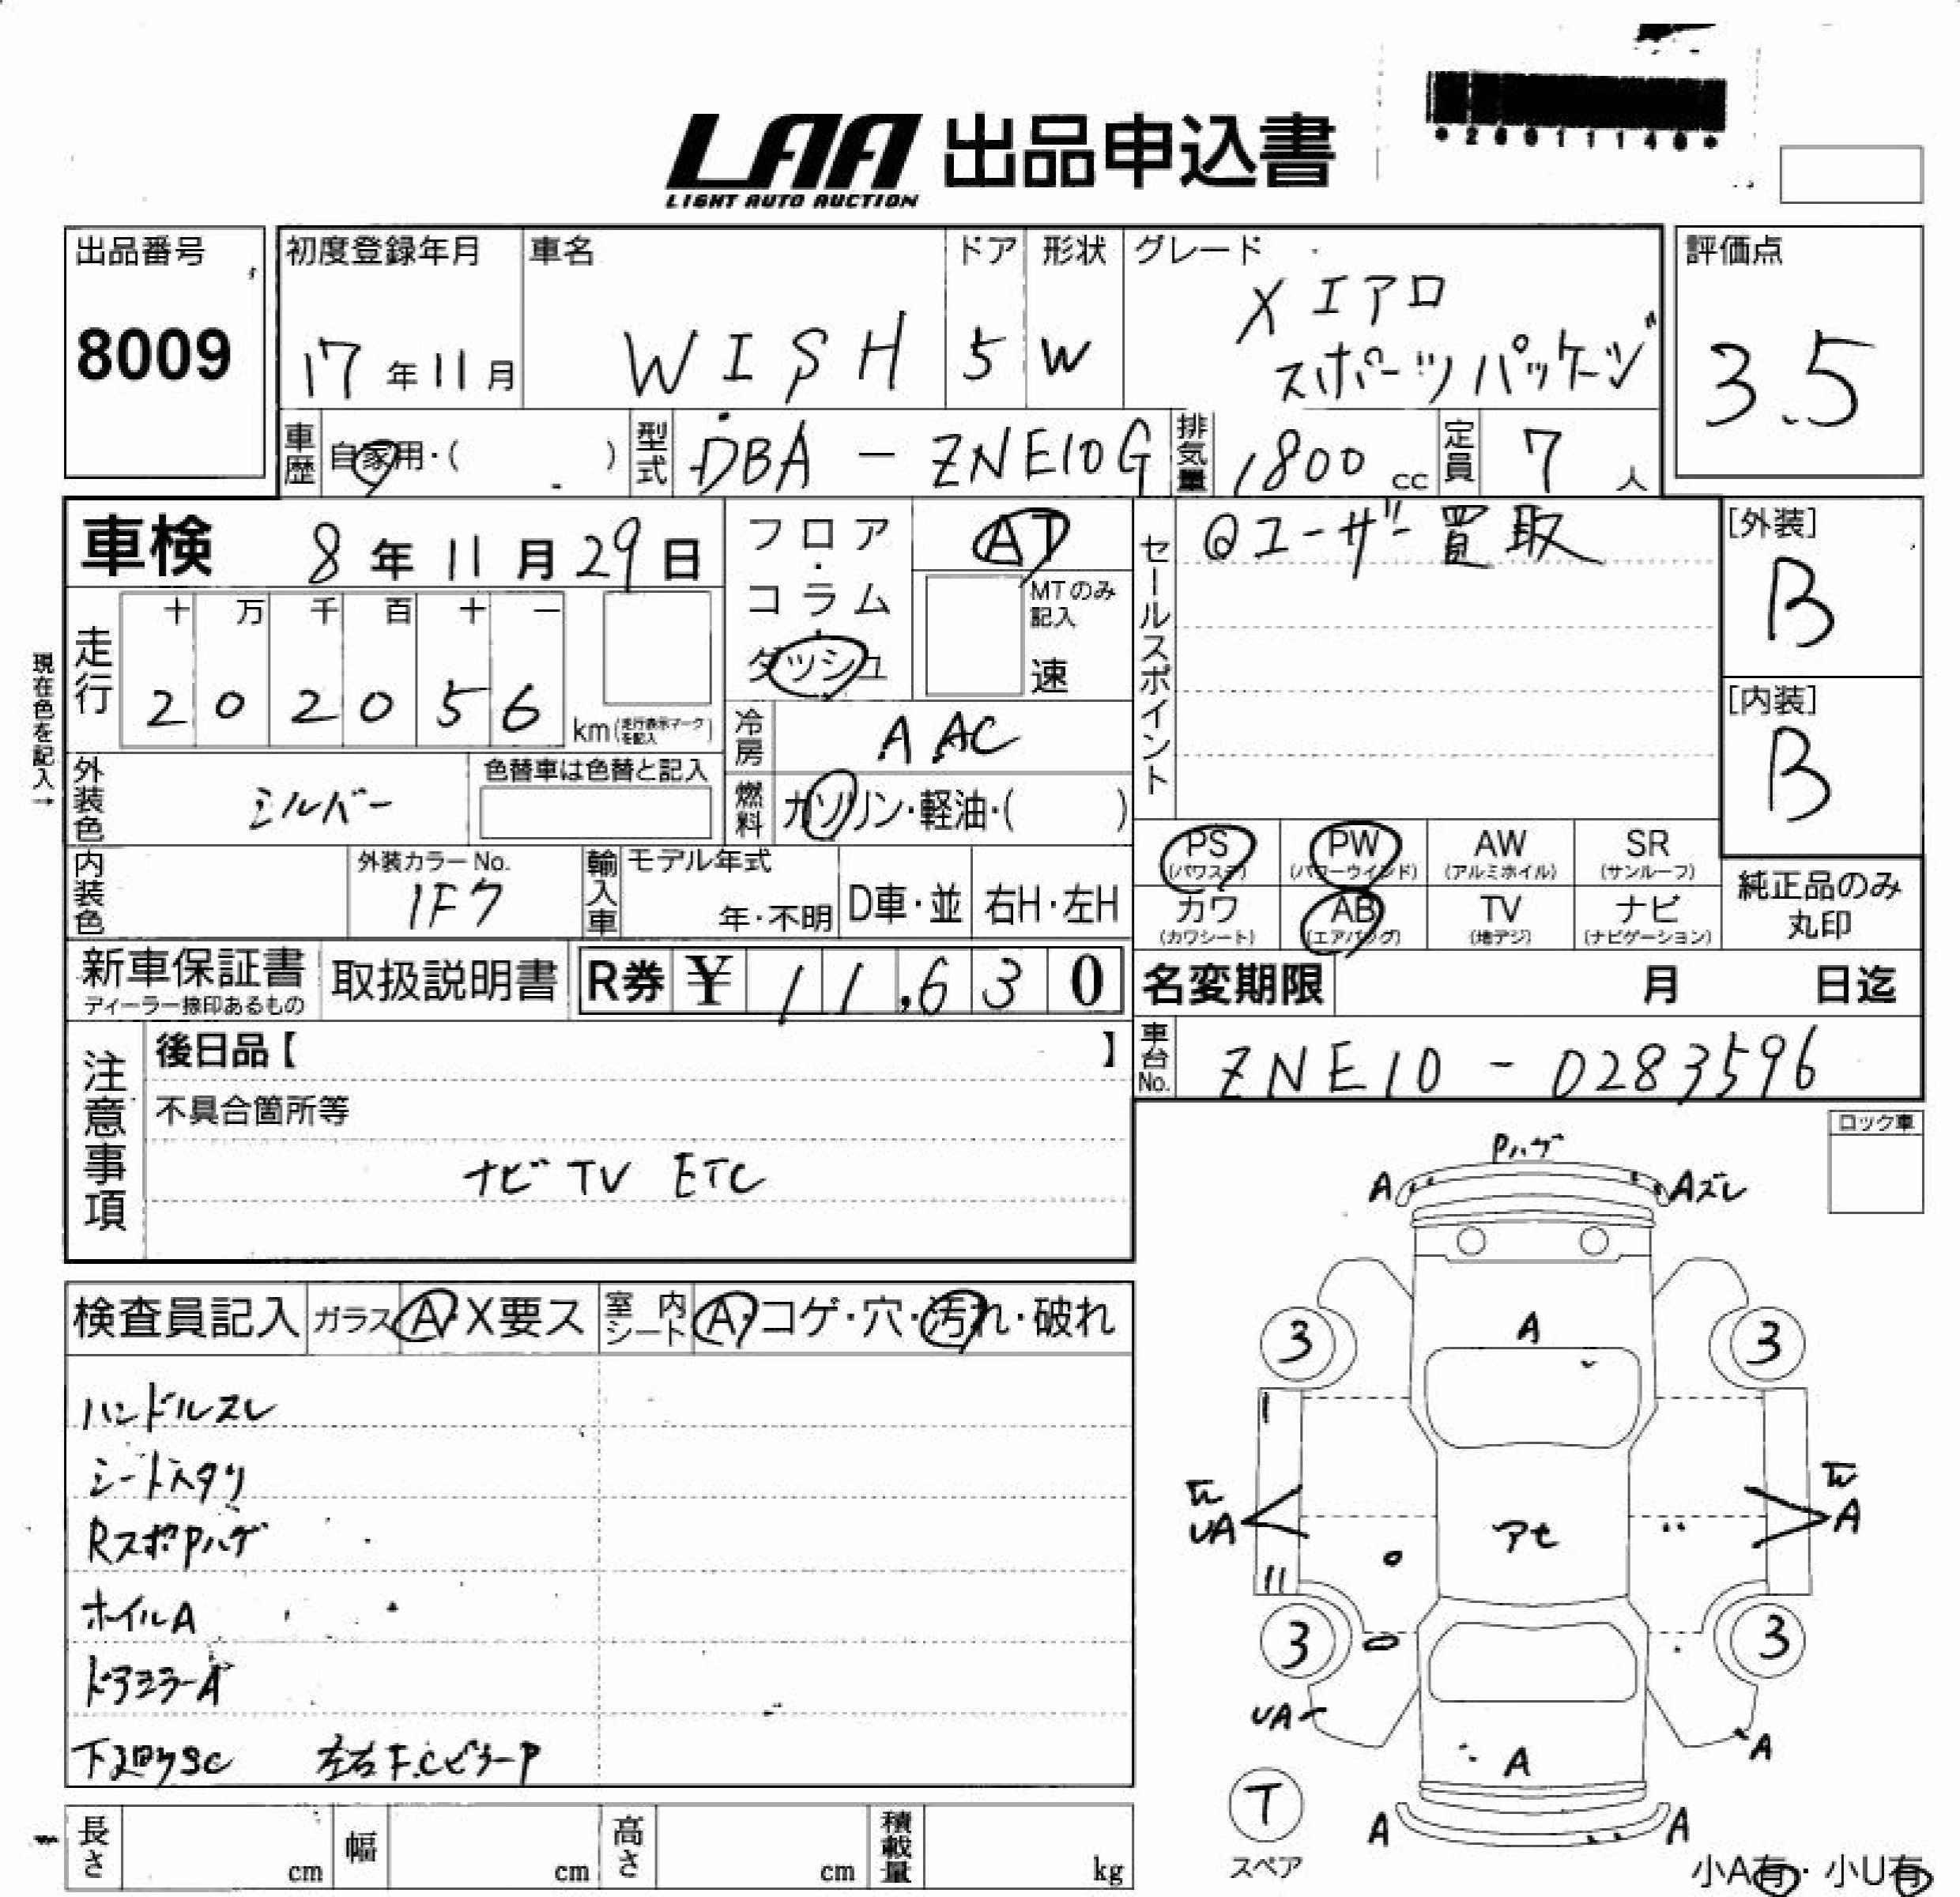 *2601114 0*
LAA 出品申込書
LIGHT AUTO AUCTION
出品番号
8009
初度登録年月
17年11月
車名
WISH
ドア
5
形状
W
グレード
X エアロ
スポーツパッケージ
評価点
3.5
車歴
自家用・( )
型式
DBA - ZNE10G
排気量
1800 cc
定員
7 人
車検 8年11月29日
フロア・コラム・ダッシュ
AT
MTのみ記入
速
セールスポイント
Qユーザー買取
[外装]
B
[内装]
B
現在色を記入→
走行
十 万 千 百 十 一
2 0 2 0 5 6
km(走行表示マークを記入)
冷房
AAC
外装色
シルバー
色替車は色替と記入
燃料
ガソリン・軽油・( )
PS (パワステ)
PW (パワーウインド)
AW (アルミホイル)
SR (サンルーフ)
カワ (カワシート)
AB (エアバッグ)
TV (地デジ)
ナビ (ナビゲーション)
純正品のみ
丸印
内装色
外装カラーNo.
1F7
輸入車
モデル年式
年・不明
D車・並
右H・左H
新車保証書
ディーラー捺印あるもの
取扱説明書
R券 ¥ 11,630
名変期限 月 日迄
車台No.
ZNE10 - 0283596
注意事項
後日品【 】
不具合箇所等
ナビ TV ETC
ロック車
検査員記入
ガラス A・X要ス
室内シート A・コゲ・穴・汚れ・破れ
ハンドルスレ
シートヘタリ
RスポPハゲ
ホイルA
ドアミラーA
下廻りSC 左右F.CピラーP
Pハゲ
A
Aズレ
3
A
3
UA
アセ
A
3
3
UA
A
A
T
スペア
A
A
小A有・小U有
長さ cm
幅 cm
高さ cm
積載量 kg